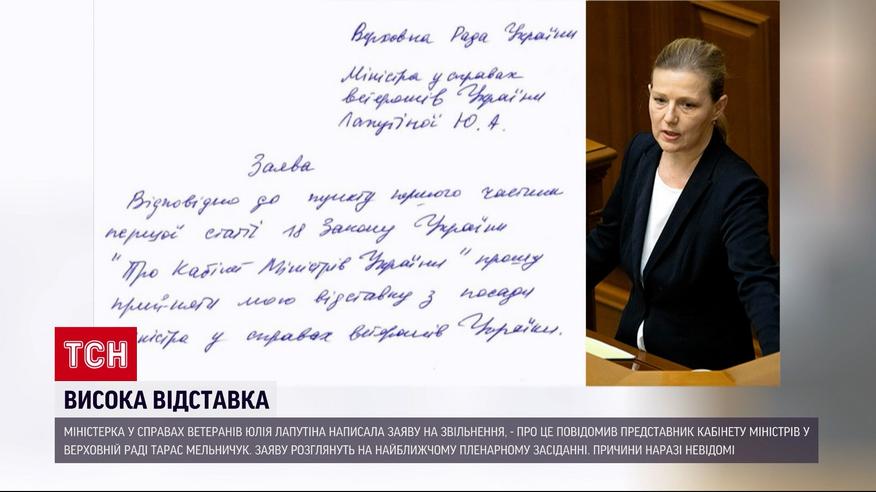 Верховна Рада України
Міністра у справах
ветеранів України
Лапутіної Ю. А.
Заява
Відповідно до пункту першого частини
першої статті 18 Закону України
"Про Кабінет Міністрів України" прошу
прийняти мою відставку з посади
міністра у справах ветеранів України.
ТСН
ВИСОКА ВІДСТАВКА
МІНІСТЕРКА У СПРАВАХ ВЕТЕРАНІВ ЮЛІЯ ЛАПУТІНА НАПИСАЛА ЗАЯВУ НА ЗВІЛЬНЕННЯ, - ПРО ЦЕ ПОВІДОМИВ ПРЕДСТАВНИК КАБІНЕТУ МІНІСТРІВ У
ВЕРХОВНІЙ РАДІ ТАРАС МЕЛЬНИЧУК. ЗАЯВУ РОЗГЛЯНУТЬ НА НАЙБЛИЖЧОМУ ПЛЕНАРНОМУ ЗАСІДАННІ. ПРИЧИНИ НАРАЗІ НЕВІДОМІ